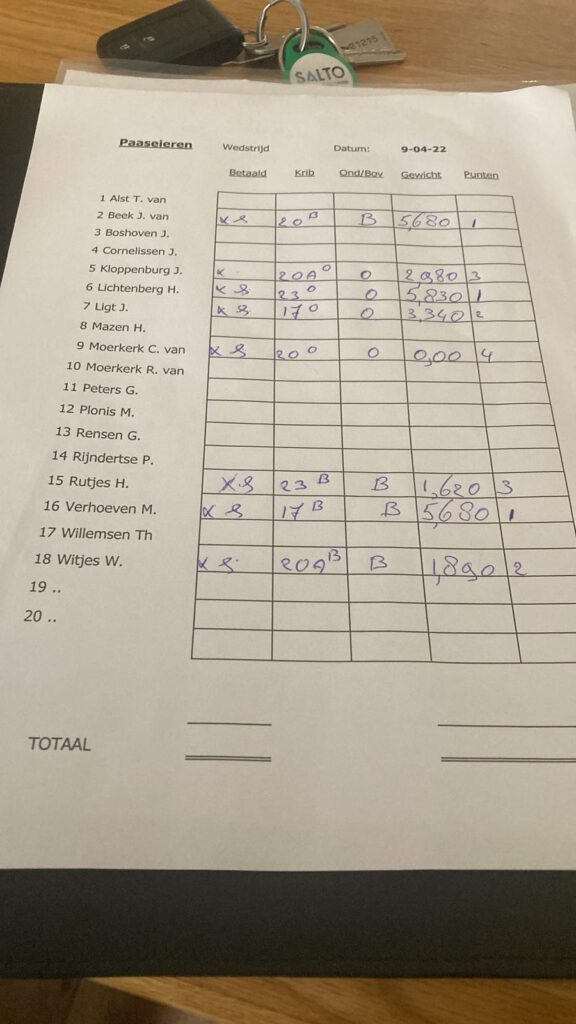 SALTO
21215
Paaseieren Wedstrijd Datum: 9-04-22
Betaald Krib Ond/Bov Gewicht Punten
1 Alst T. van
2 Beek J. van x S 20 B B 5,680 1
3 Boshoven J.
4 Cornelissen J.
5 Kloppenburg J. x 20A O O 2,980 3
6 Lichtenberg H. x S 23 O O 5,830 1
7 Ligt J. x S 17 O O 3,340 2
8 Mazen H.
9 Moerkerk C. van x S 20 O O 0,00 4
10 Moerkerk R. van
11 Peters G.
12 Plonis M.
13 Rensen G.
14 Rijndertse P.
15 Rutjes H. x S 23 B B 1,620 3
16 Verhoeven M. x S 17 B B 5,680 1
17 Willemsen Th
18 Witjes W. x S 20A B B 1,890 2
19 ..
20 ..
TOTAAL